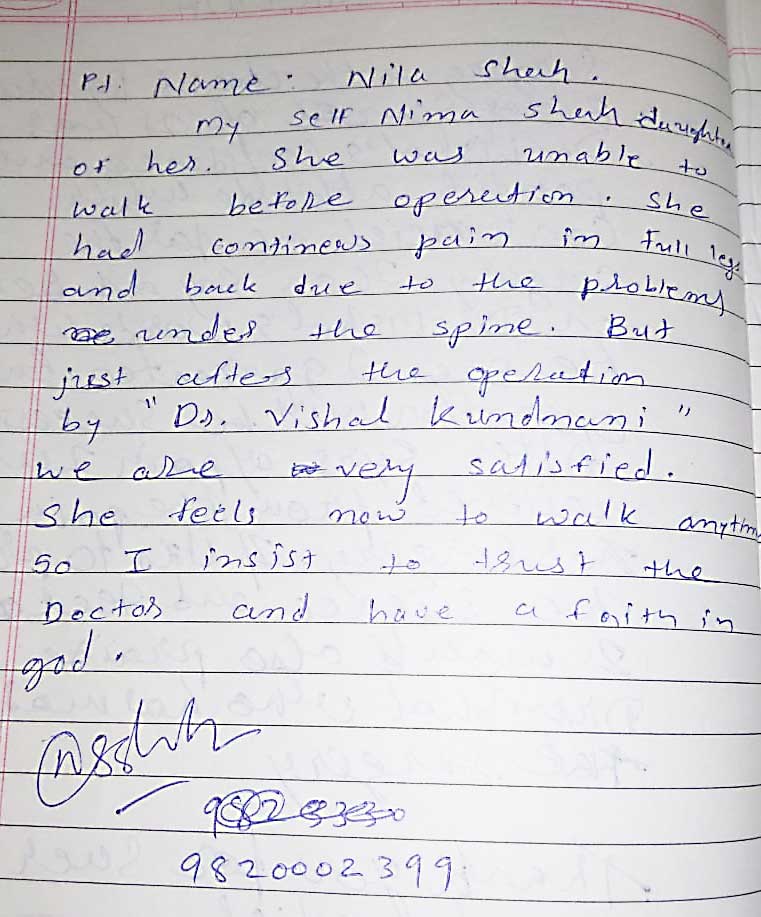 Pt. Name : Nila Shah.
My self Nima Shah daughter
of her. She was unable to
walk before operation. She
had continews pain in full leg
and back due to the problems
under the spine. But
just afters the operation
by "Dr. Vishal Kundnani"
we are very satisfied.
She feels now to walk anythm
so I insist to trust the
Doctor and have a faith in
god.
9820002399